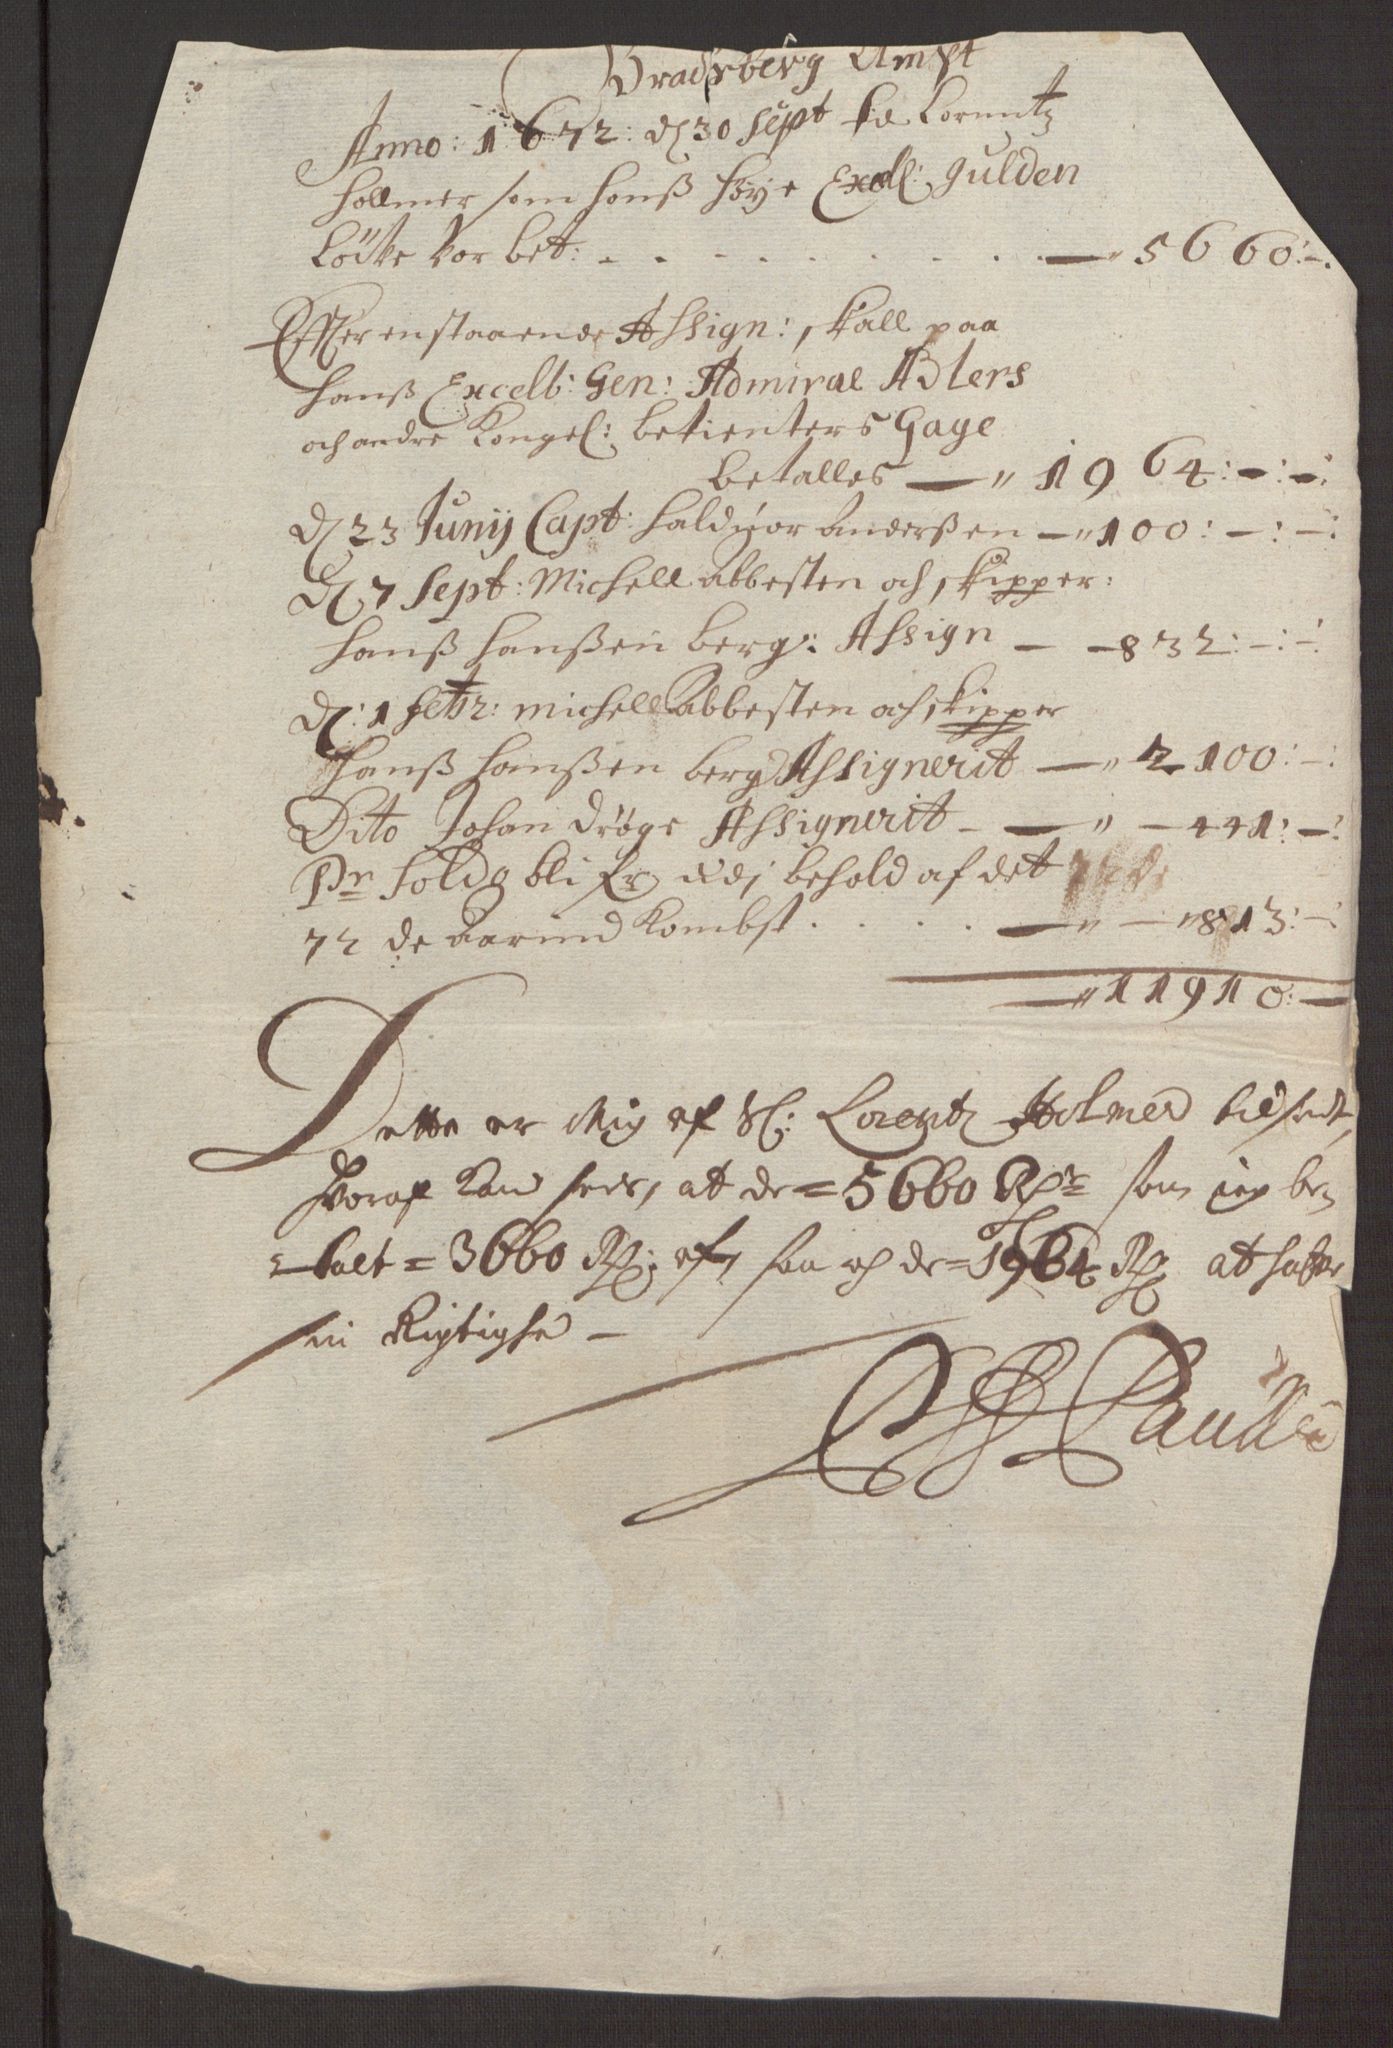 Bradsberg Ampt
Anno: 1672: dn 30 Sept Sl Lorentz
Hollmer som Hanß Høye Excell: Gulden
Løwe vor bet: — 5660:-.
Effter enstaaende Assign: skall paa
Hanß Excell: Gen: Admiral Adlers
och andre Kongel: betienters Gage
betalles — 1964:-:-:
Dn 23 Junij Capt: Haldvor Anderßen — 100:-:-:
Dn 7 Sept: Michell Abbesten och skipper:
Hanß Hanßen berg: Assign — 832:-:-:
Dn: 1 Febr: Michell Abbesten och skipper
Hanß Hanßen berg Assignerit — 2100:-:
Dito Johan Drøge Assignerit — 441:-:
Pr Soldo blifr udj behold af det
72 de aar ind Kombst — 813:-:
11910:-
Dette er Mig af Sl: Lorentz Holmer til
Hvoraf kan sees, at de = 5660 Rdr som jeg be=
=talt = 3660 Rdr: aff, saa och de = 1964 Rdr at hafve
sin Rigtighed —
Paulli